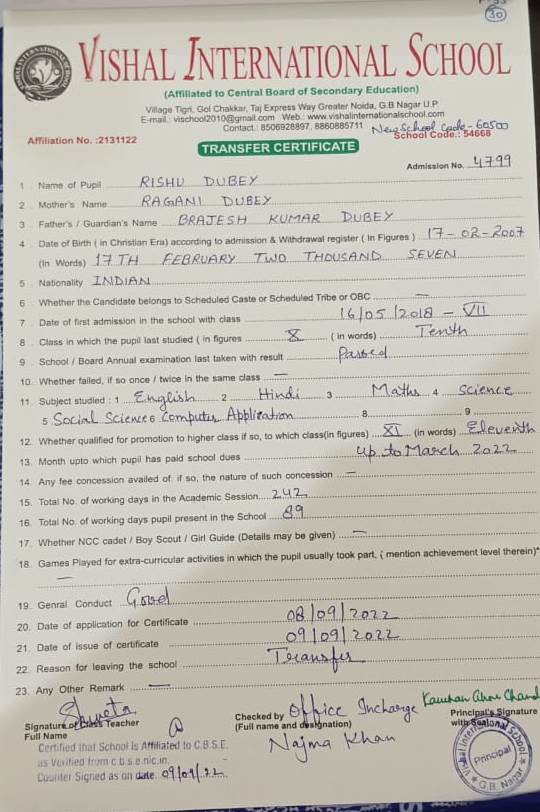 30
VISHAL INTERNATIONAL SCHOOL
(Affiliated to Central Board of Secondary Education)
Village Tigri, Gol Chakkar, Taj Express Way Greater Noida, G.B Nagar U.P
E-mail.: vischool2010@gmail.com Web.: www.vishalinternationalschool.com
Contact.: 8506928897, 8860885711 New School Code - 60500
Affiliation No. :2131122 School Code.: 54668
TRANSFER CERTIFICATE
Admission No. 4799
1 Name of Pupil RISHU DUBEY
2 Mother's Name RAGANI DUBEY
3 Father's / Guardian's Name BRAJESH KUMAR DUBEY
4 Date of Birth ( in Christian Era) according to admission & Withdrawal register ( In Figures ) 17-02-2007
(In Words) 17TH FEBRUARY TWO THOUSAND SEVEN
5 Nationality INDIAN
6 Whether the Candidate belongs to Scheduled Caste or Scheduled Tribe or OBC —
7 Date of first admission in the school with class 16/05/2018 - VII
8 Class in which the pupil last studied ( in figures X ( in words) Tenth
9 School / Board Annual examination last taken with result Passed
10. Whether failed, if so once / twice in the same class —
11. Subject studied : 1 English 2 Hindi 3 Maths 4 Science
5 Social Science 6 Computer Application 8 9
12. Whether qualified for promotion to higher class if so, to which class(in figures) XI (in words) Eleventh
13. Month upto which pupil has paid school dues up to March 2022
14. Any fee concession availed of: if so, the nature of such concession —
15. Total No. of working days in the Academic Session 242
16. Total No. of working days pupil present in the School 89
17. Whether NCC cadet / Boy Scout / Girl Guide (Details may be given) —
18. Games Played for extra-curricular activities in which the pupil usually took part, ( mention achievement level therein)*
—
19. Genral Conduct Good
20. Date of application for Certificate 08/09/2022
21. Date of issue of certificate 09/09/2022
22. Reason for leaving the school Transfer
23. Any Other Remark —
Shweta
Signature of Class Teacher
Full Name
Checked by Office Incharge
(Full name and designation)
Najma Khan
Principal's Signature
with Seal
Certified that School is Affiliated to C.B.S.E.
as Verified from c.b.s.e.nic.in.
Counter Signed on date. 09/09/22
Vishal International School
Principal
G.B. Nagar